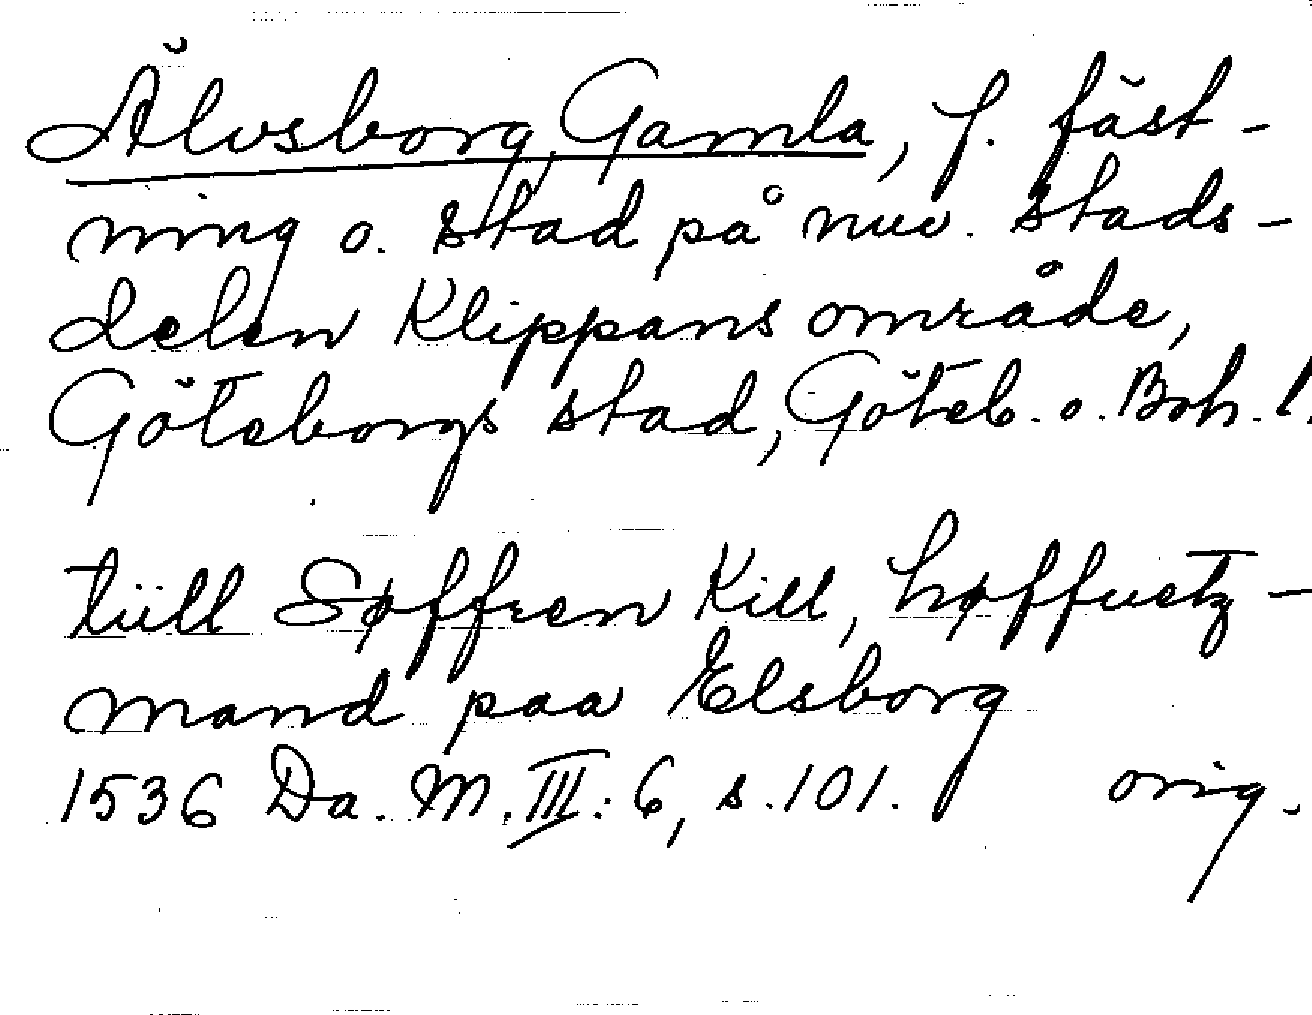 Älvsborg, Gamla, f. fäst-
ning o. stad på nuv. stads-
delen Klippans område,
Göteborgs stad, Göteb. o. Boh. l.
tiill Søffren Kill, høffuetz-
mand paa Elsborg
1536 Da. M. III: 6, s. 101. orig.